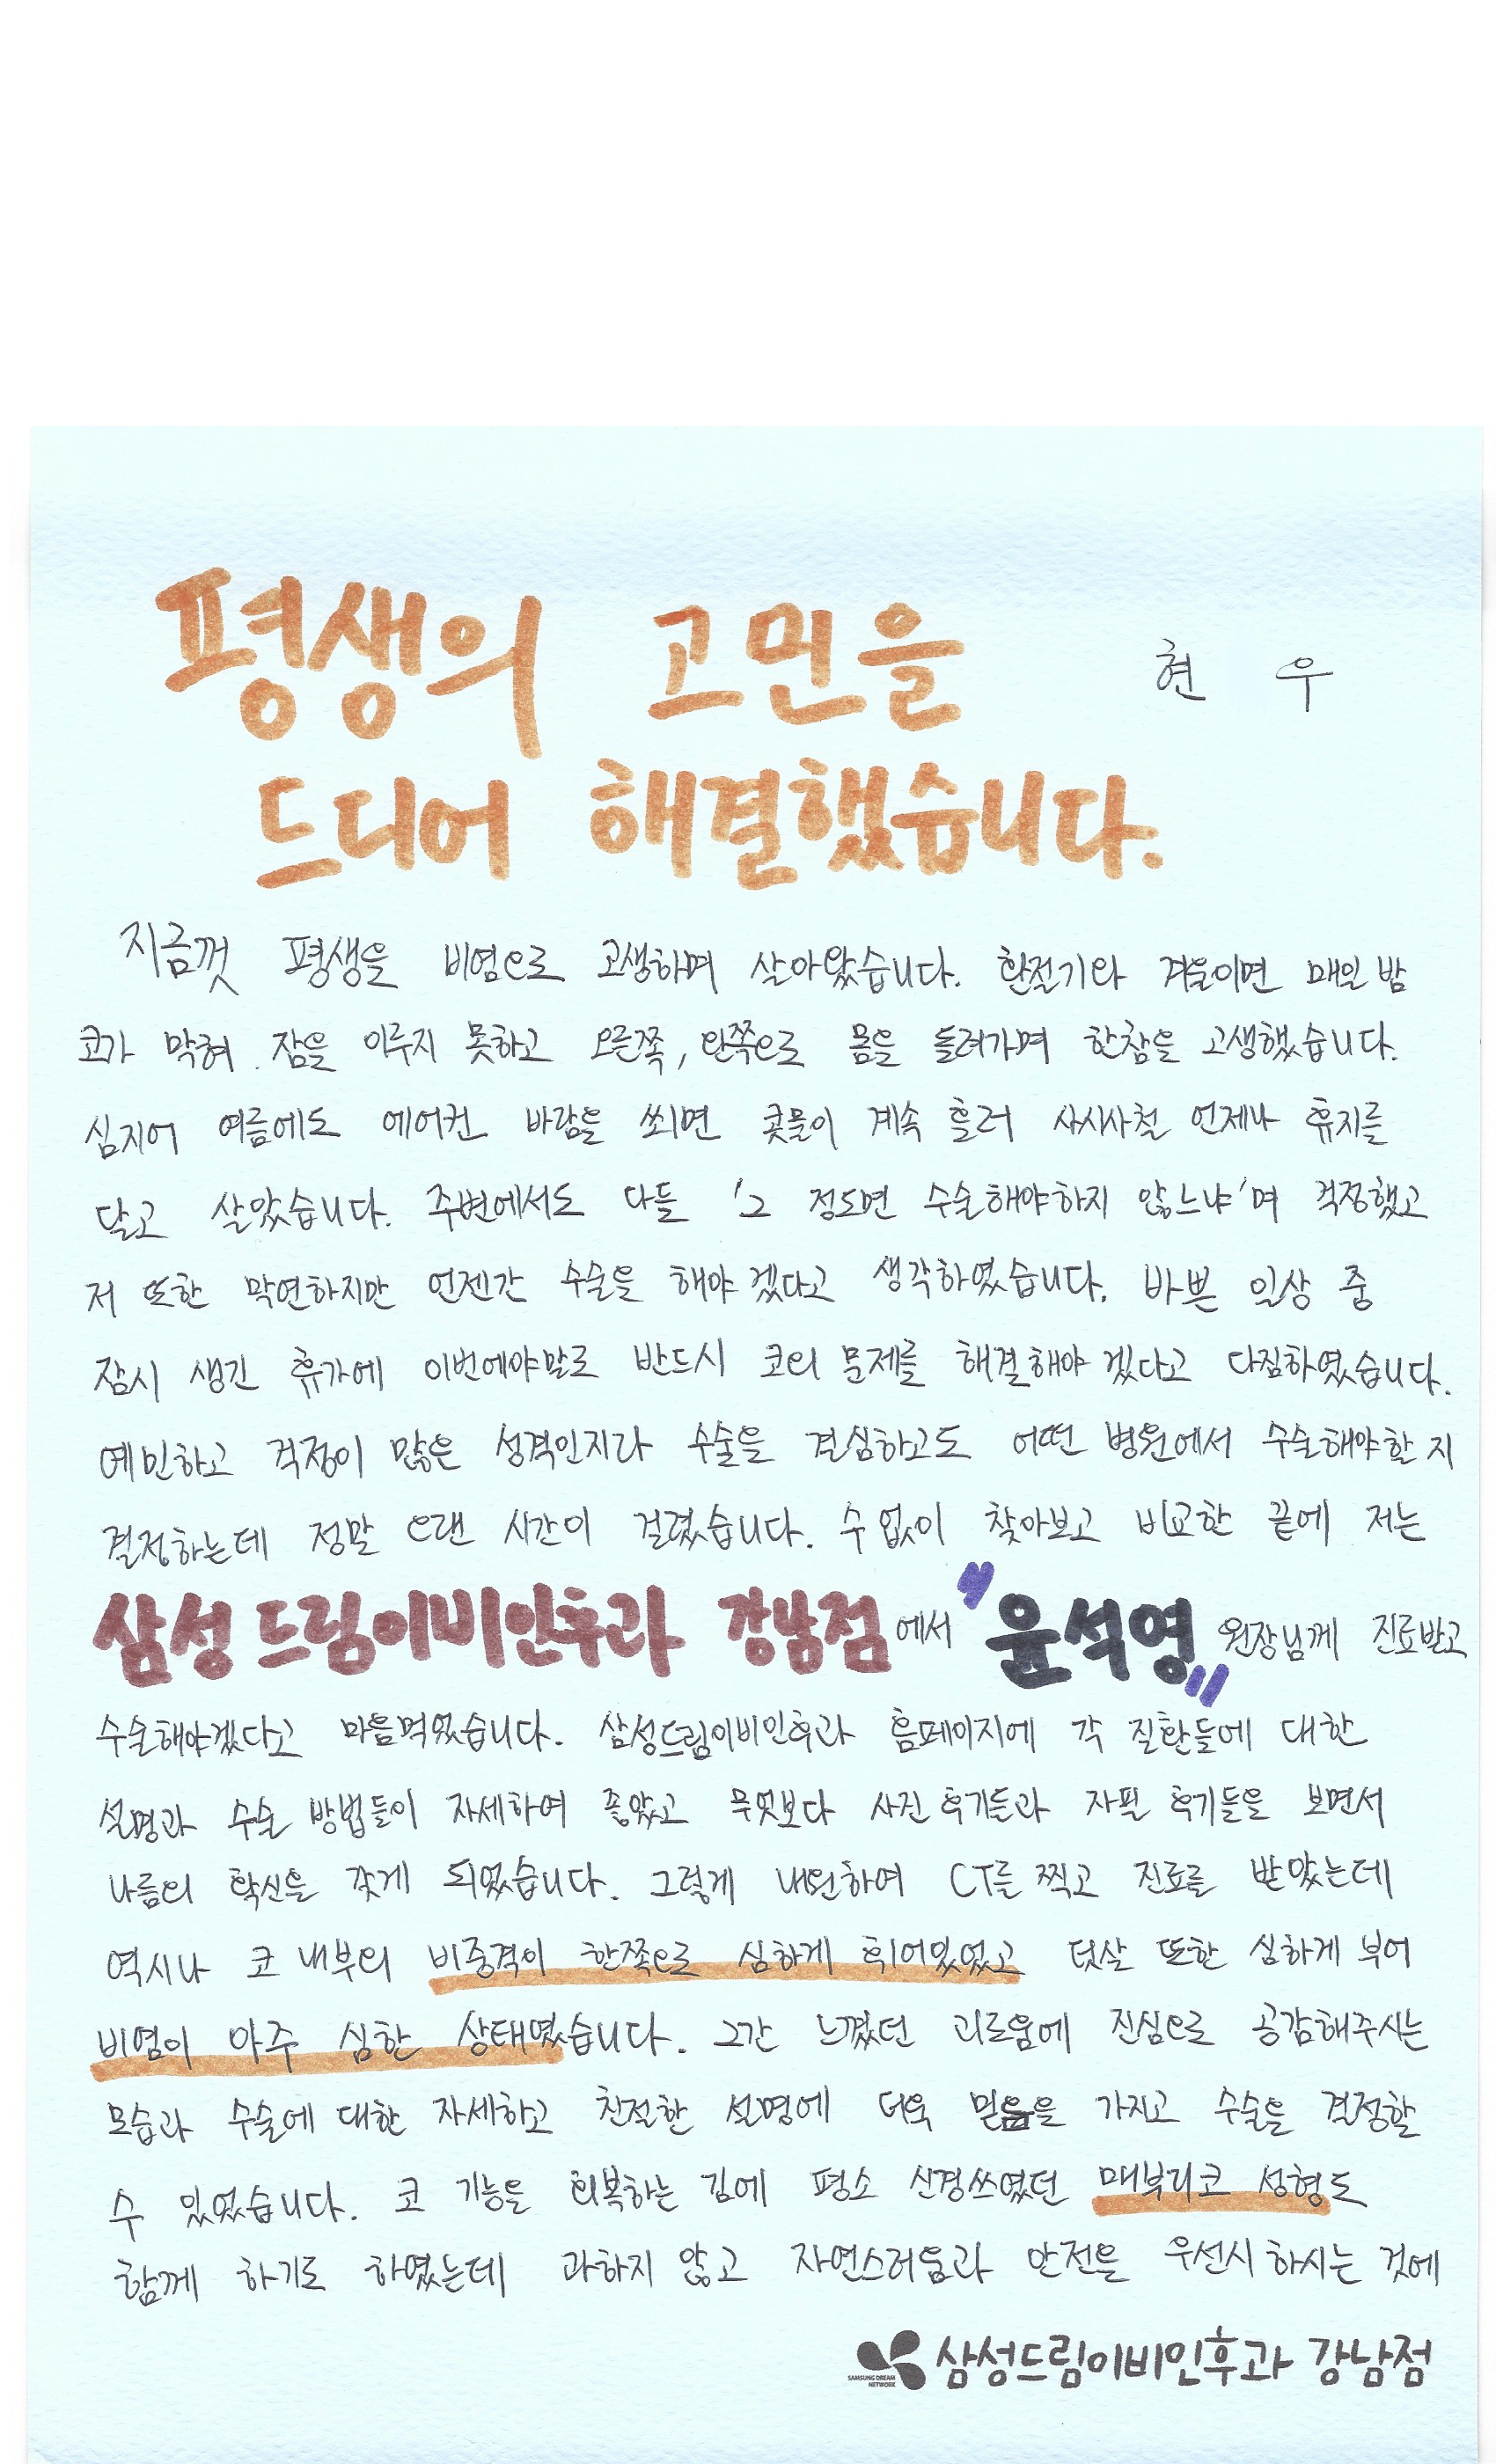 평생의 고민을
현 우
드디어 해결했습니다.
지금껏 평생을 비염으로 고생하며 살아왔습니다. 환절기와 겨울이면 매일 밤
코가 막혀 잠을 이루지 못하고 오른쪽, 왼쪽으로 몸을 돌려가며 한참을 고생했습니다.
심지어 여름에도 에어컨 바람을 쐬면 콧물이 계속 흘러 사시사철 언제나 휴지를
달고 살았습니다. 주변에서도 다들 '그 정도면 수술해야하지 않느냐'며 걱정했고
저 또한 막연하지만 언젠간 수술을 해야겠다고 생각하였습니다. 바쁜 일상 중
잠시 생긴 휴가에 이번에야말로 반드시 코의 문제를 해결해야겠다고 다짐하였습니다.
예민하고 걱정이 많은 성격인지라 수술을 결심하고도 어떤 병원에서 수술해야할 지
결정하는데 정말 오랜 시간이 걸렸습니다. 수없이 찾아보고 비교한 끝에 저는
삼성드림이비인후과 강남점에서 "윤석영" 원장님께 진료받고
수술해야겠다고 마음먹었습니다. 삼성드림이비인후과 홈페이지에 각 질환들에 대한
설명과 수술 방법들이 자세하여 좋았고 무엇보다 사진 후기들과 자필 후기들을 보면서
나름의 확신을 갖게 되었습니다. 그렇게 내원하여 CT를 찍고 진료를 받았는데
역시나 코 내부의 비중격이 한쪽으로 심하게 휘어있었고 덧살 또한 심하게 부어
비염이 아주 심한 상태였습니다. 그간 느꼈던 괴로움에 진심으로 공감해주시는
모습과 수술에 대한 자세하고 친절한 설명에 더욱 믿음을 가지고 수술을 결정할
수 있었습니다. 코 기능을 회복하는 김에 평소 신경쓰였던 매부리코 성형도
함께 하기로 하였는데 과하지 않고 자연스러움과 안전을 우선시 하시는 것에
SAMSUNG DREAM
NETWORK
삼성드림이비인후과 강남점